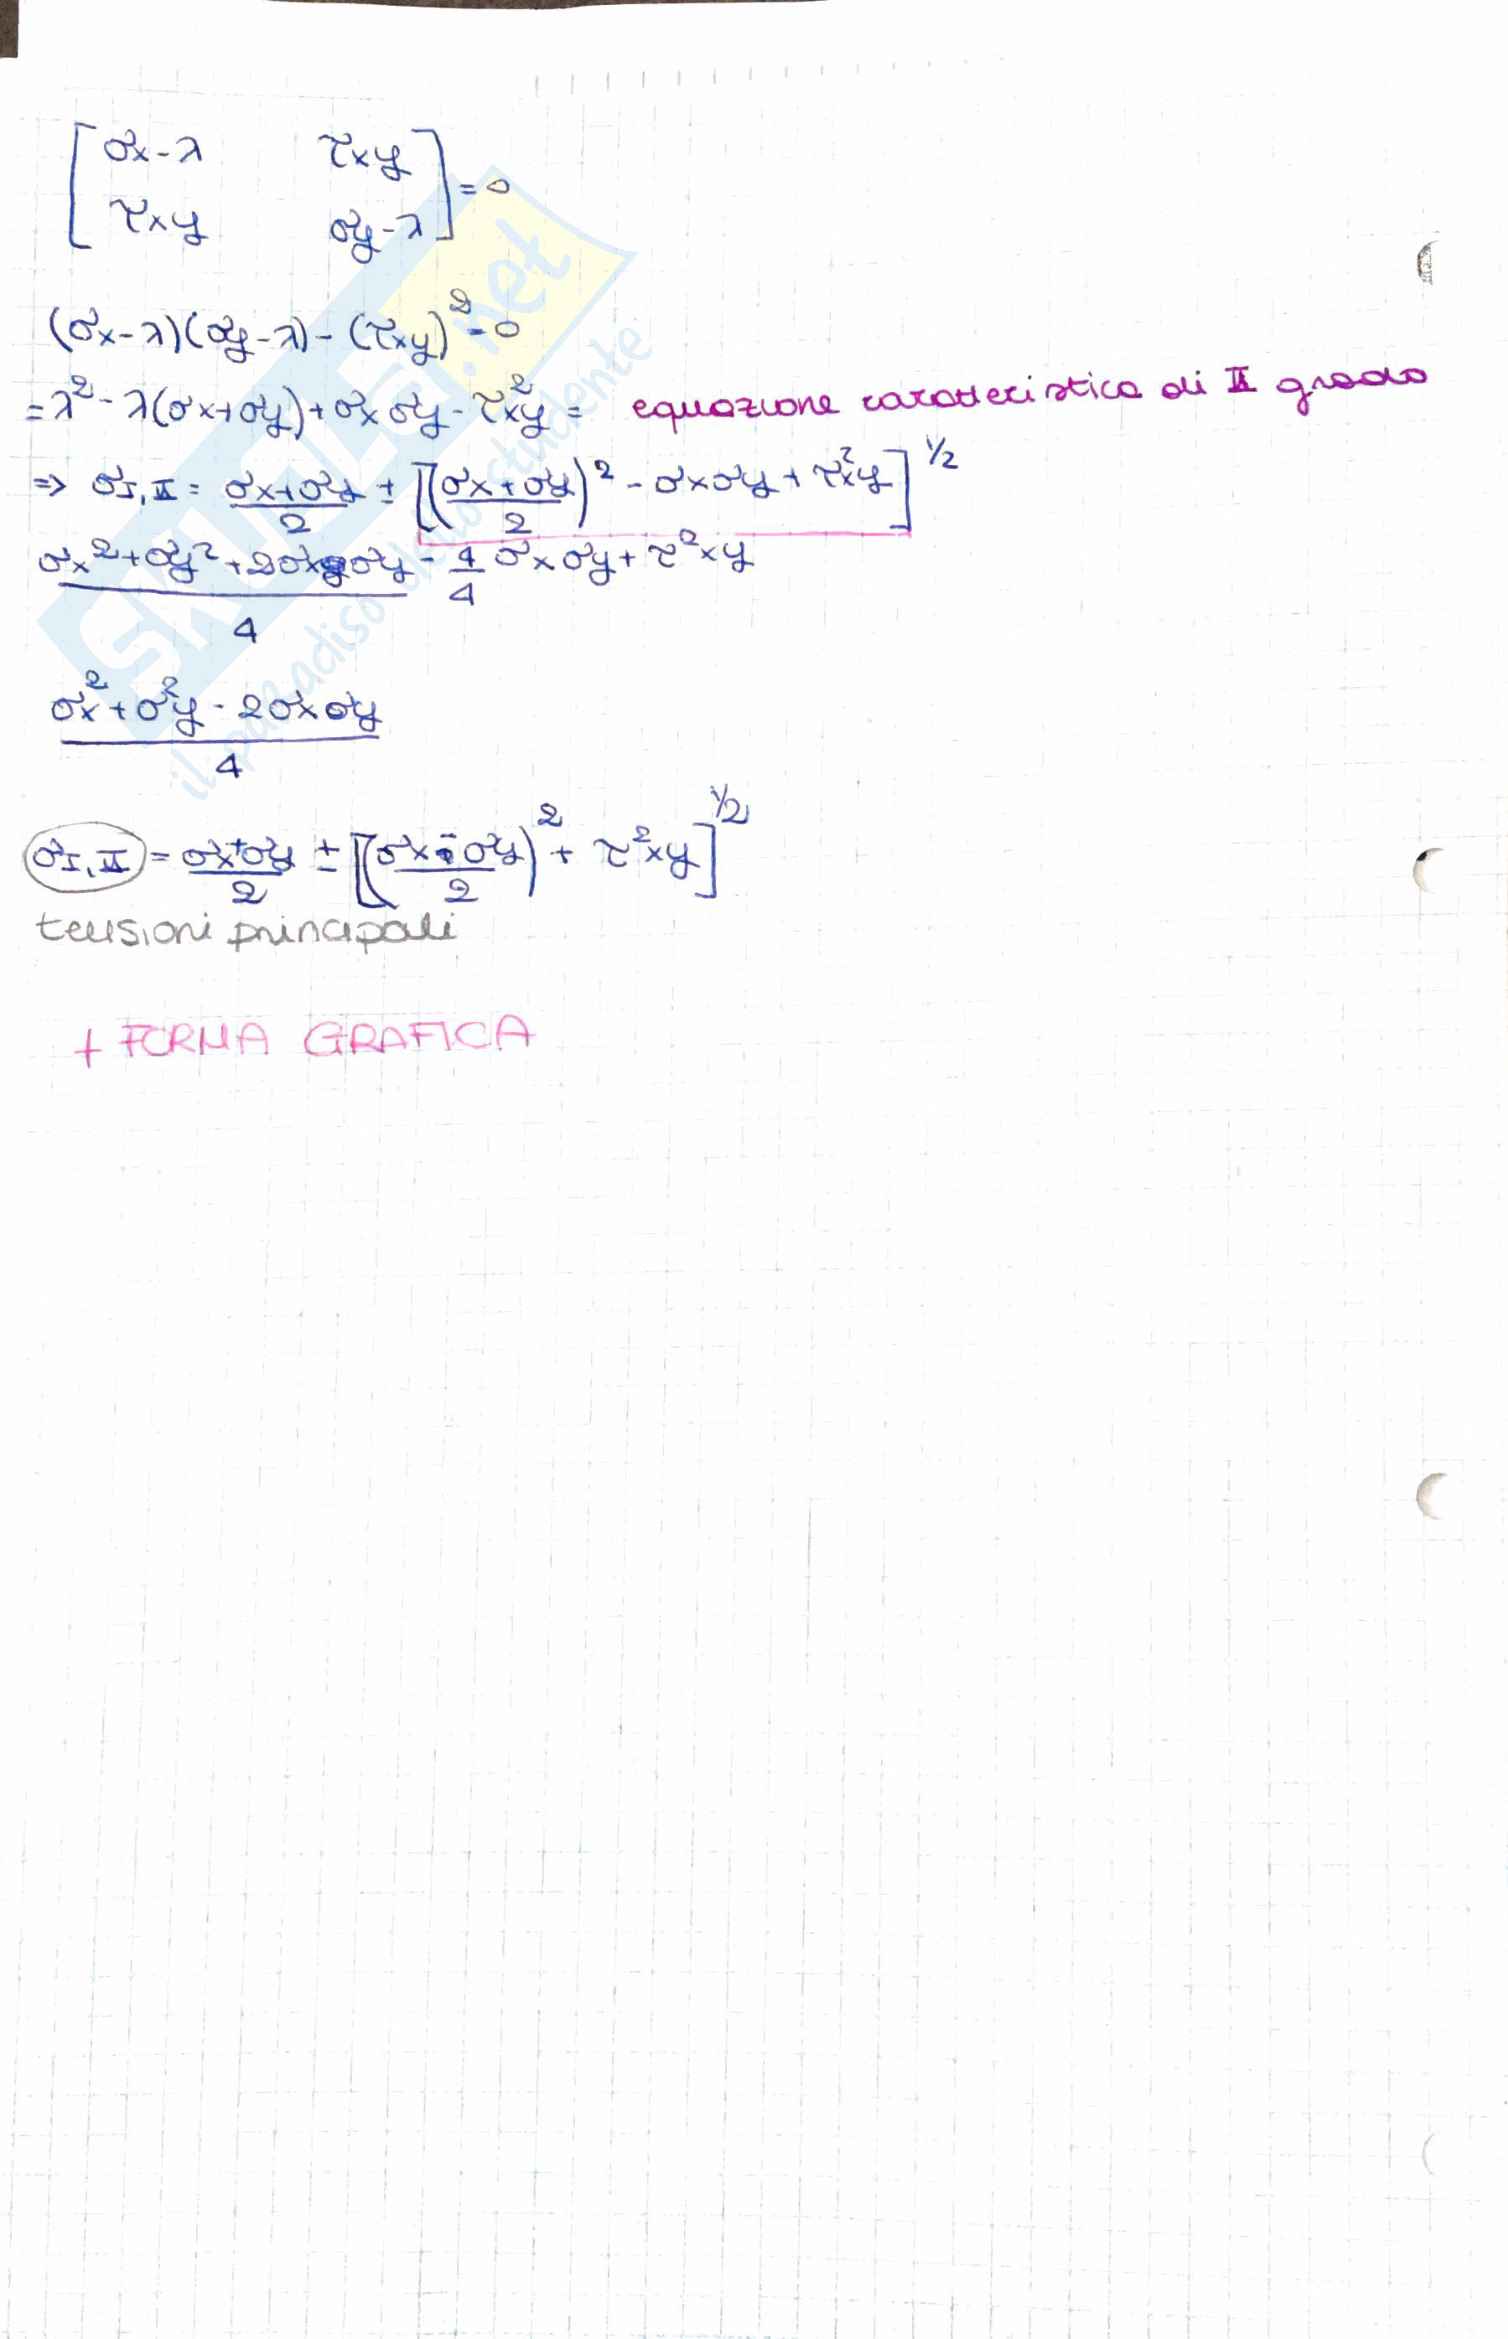 [σx-λ τxy
τxy σy-λ] = 0
(σx-λ)(σy-λ) - (τxy)² = 0
= λ² - λ(σx+σy) + σx σy - τ²xy = equazione caratteristica di II grado
⇒ σI,II = (σx+σy)/2 ± [((σx+σy)/2)² - σxσy + τ²xy]^1/2
(σx²+σy²+2σxσy)/4 - 4/4 σxσy + τ²xy
(σ²x+σ²y-2σxσy)/4
σI,II = (σx+σy)/2 ± [((σx-σy)/2)² + τ²xy]^1/2
tensioni principali
+ FORMA GRAFICA
SKUOLA.net
il paradiso dello studente